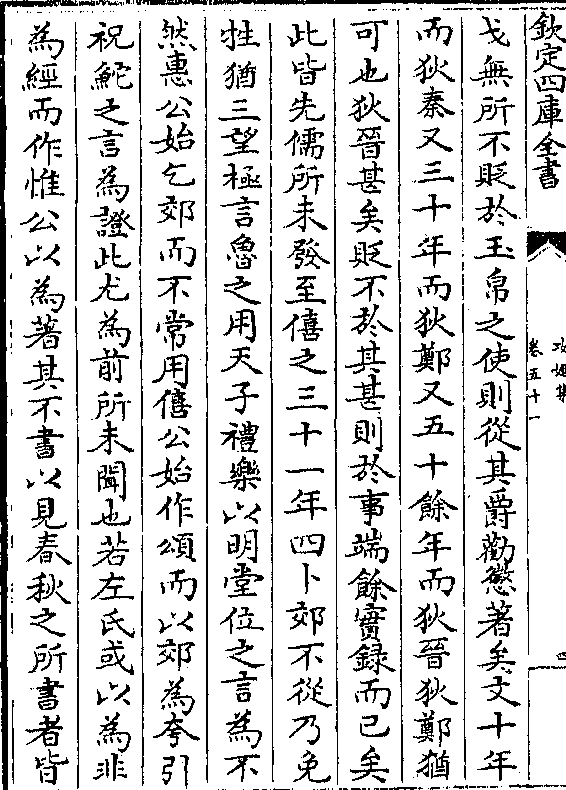 欽定四庫全書
攻媿集
卷五十一
四
戈無所不貶於玉帛之使則從其爵勸懲著矣文十年
而狄秦又三十年而狄鄭又五十餘年而狄晉狄鄭猶
可也狄晉甚矣貶不於其甚則於事端餘實録而已矣
此皆先儒所未發至僖之三十一年四卜郊不從乃免
牲猶三望極言魯之用天子禮樂以明堂位之言為不
然惠公始乞郊而不常用僖公始作頌而以郊為夸引
祝鮀之言為證此尤為前所未聞也若左氏或以為非
為經而作惟公以為著其不書以見春秋之所書者皆